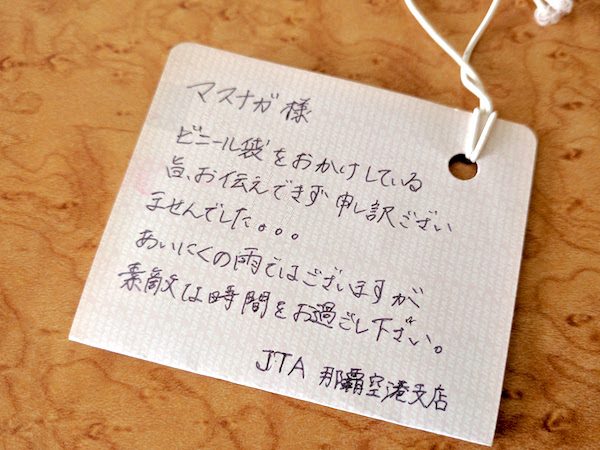 マスナガ様
ビニール袋をおかけしている
旨、お伝えできず申し訳ござい
ませんでした。。。
あいにくの雨ではございますが
素敵な時間をお過ごし下さい。
JTA 那覇空港支店